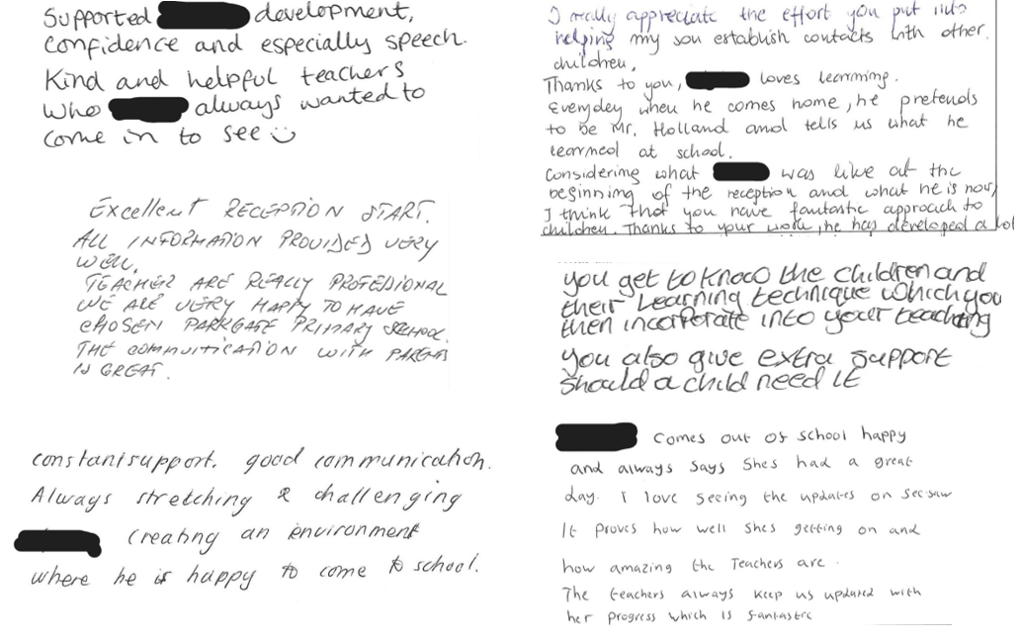 Supported development,
confidence and especially speech.
Kind and helpful teachers
who always wanted to
come in to see
Excellent RECEPTION START.
ALL INFORMATION PROVIDED VERY
WELL.
TEACHER ARE REALLY PROFESSIONAL
WE ARE VERY HAPPY TO HAVE
CHOSEN PARKGATE PRIMARY SCHOOL.
THE COMMUTICATION WITH PARENTS
IS GREAT.
constant support. good communication.
Always stretching & challenging
creating an environment
where he is happy to come to school.
I really appreciate the effort you put into
helping my son establish contacts with other
children.
Thanks to you, loves learning.
Everyday when he comes home, he pretends
to be Mr. Holland and tells us what he
learned at school.
Considering what was like at the
beginning of the reception and what he is now,
I think that you have fantastic approach to
children. Thanks to your work, he has developed a lot
you get to know the children and
their learning technique which you
then incorporate into your teaching
you also give extra support
should a child need it
Comes out of school happy
and always says shes had a great
day. I love seeing the updates on seesaw
It proves how well shes getting on and
how amazing the Teachers are.
The teachers always keep us updated with
her progress which is fantastic